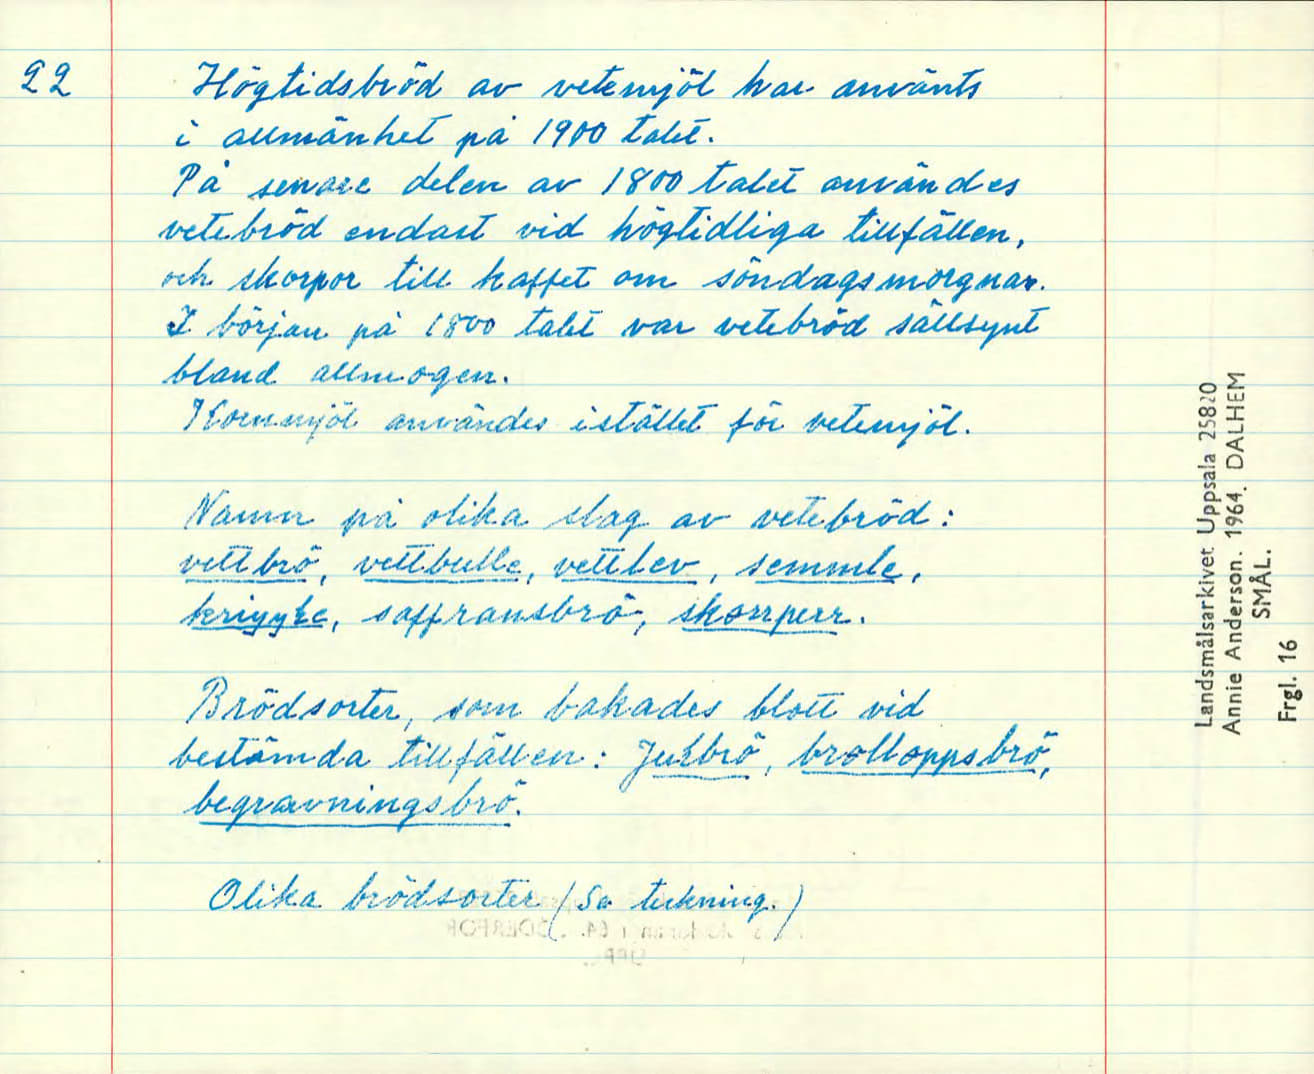 22
Högtidsbröd av vetemjöl har använts
i allmänhet på 1900 talet.
På senare delen av 1800 talet användes
vetebröd endast vid högtidliga tillfällen,
och skorpor till kaffet om söndagsmorgnar.
I början på 1800 talet var vetebröd sällsynt
bland allmogen.
Kornmjöl användes istället för vetemjöl.
Namn på olika slag av vetebröd:
vettbrö, vettbulle, vettlev, semmle,
saffransbrö, skorrperr.
Brödsorter, som bakades blott vid
bestämda tillfällen: Julbrö, brolloppsbrö,
begravningsbrö.
Olika brödsorter (Se teckning.)
Landsmålsarkivet Uppsala 25820
Annie Anderson. 1964. DALHEM
SMÅL.
Frgl. 16